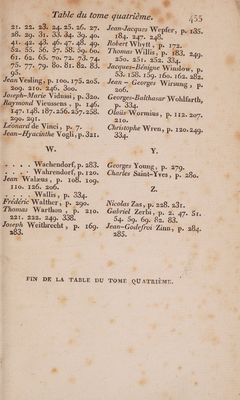 Table du tome quatrième. 455
21. 22. 23. 24. 25. 26. 27.
28. 29. 31. 33. 34. 39. 40.
41. 42. 43. 46. 47. 48. 49.
52. 55. 56. 57. 58. 59. 60.
61. 64. 65. 70. 72. 73. 74.
75. 77. 79. 80. 81. 82. 83.
95.
Jean Vesling, p. 100. 175. 205.
209. 210. 246. 300.
Joseph-Marie Vidussi, p. 320.
Raymond Vieussens, p. 146.
147. 148. 187. 256. 257. 258.
290. 291.
Léonard de Vinci, p. 7.
Jean-Hyacinthe Vogli, p. 321.
W.
. . . . Wachendorf, p. 283.
. . . . Wahrendorf, p. 120.
Jean Walæus, p. 108. 109.
110. 126. 206.
. . . . Wallis, p. 334.
Frédéric Walther, p. 290.
Thomas Warthon, p. 210.
221. 222. 249. 338.
Joseph Weitbrecht, p. 169.
283.
Jean-Jacques Wepfer, p. 185.
184. 247. 248.
Robert Whytt, p. 172.
Thomas Willis, p. 183. 249.
250. 251. 252. 334.
Jacques-Bénigne Winslow, p.
53. 158. 159. 160. 162. 282.
Jean-Georges Wirsung, p.
206.
Georges-Balthasar Wohlfarth,
p. 334.
Olaüs Wormius, p. 112. 207.
210.
Christophe Wren, p. 120. 249.
334.
Y.
Georges Young, p. 279.
Charles Saint-Yves, p. 280.
Z.
Nicolas Zas, p. 228. 231.
Gabriel Zerbi, p. 2. 47. 51.
54. 59. 69. 82. 83.
Jean-Godefroi Zinn, p. 284.
285.
FIN DE LA TABLE DU TOME QUATRIÈME.